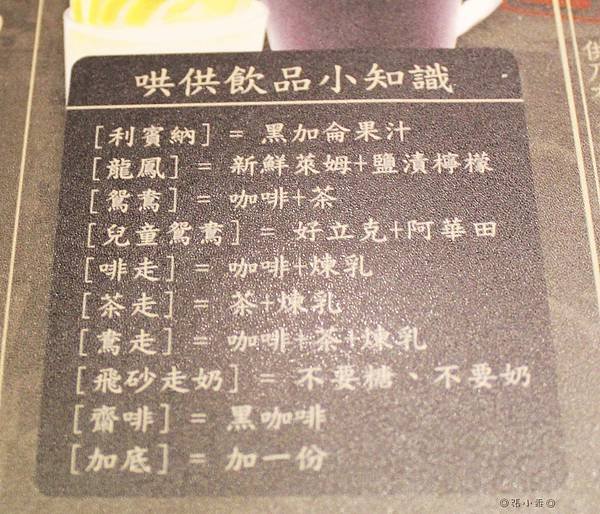 哄供飲品小知識
[利賓納] = 黑加侖果汁
[龍鳳] = 新鮮萊姆+鹽漬檸檬
[鴛鴦] = 咖啡+茶
[兒童鴛鴦] = 好立克+阿華田
[啡走] = 咖啡+煉乳
[茶走] = 茶+煉乳
[鴦走] = 咖啡+茶+煉乳
[飛砂走奶] = 不要糖、不要奶
[齋啡] = 黑咖啡
[加底] = 加一份
◎張小乖◎